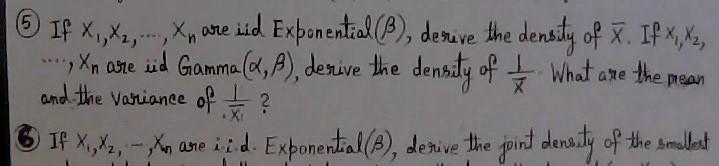 ⑤ If X₁,X₂,...., Xₙ are iid Exponential(β), derive the density of X̄. If X₁,X₂,
...., Xₙ are iid Gamma(α,β), derive the density of 1/X̄. What are the mean
and the variance of 1/X̄ ?
⑥ If X₁,X₂, -,Xₙ are i.i.d. Exponential(β), derive the joint density of the smallest